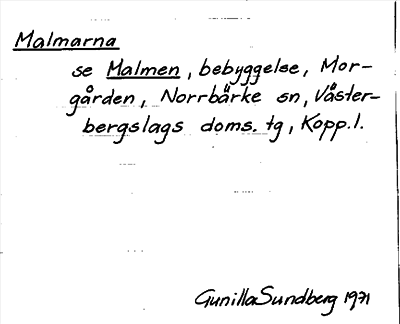 Malmarna
se Malmen, bebyggelse, Mor-
gården, Norrbärke sn, Väster-
bergslags doms. tg, Kopp.l.
Gunilla Sundberg 1971